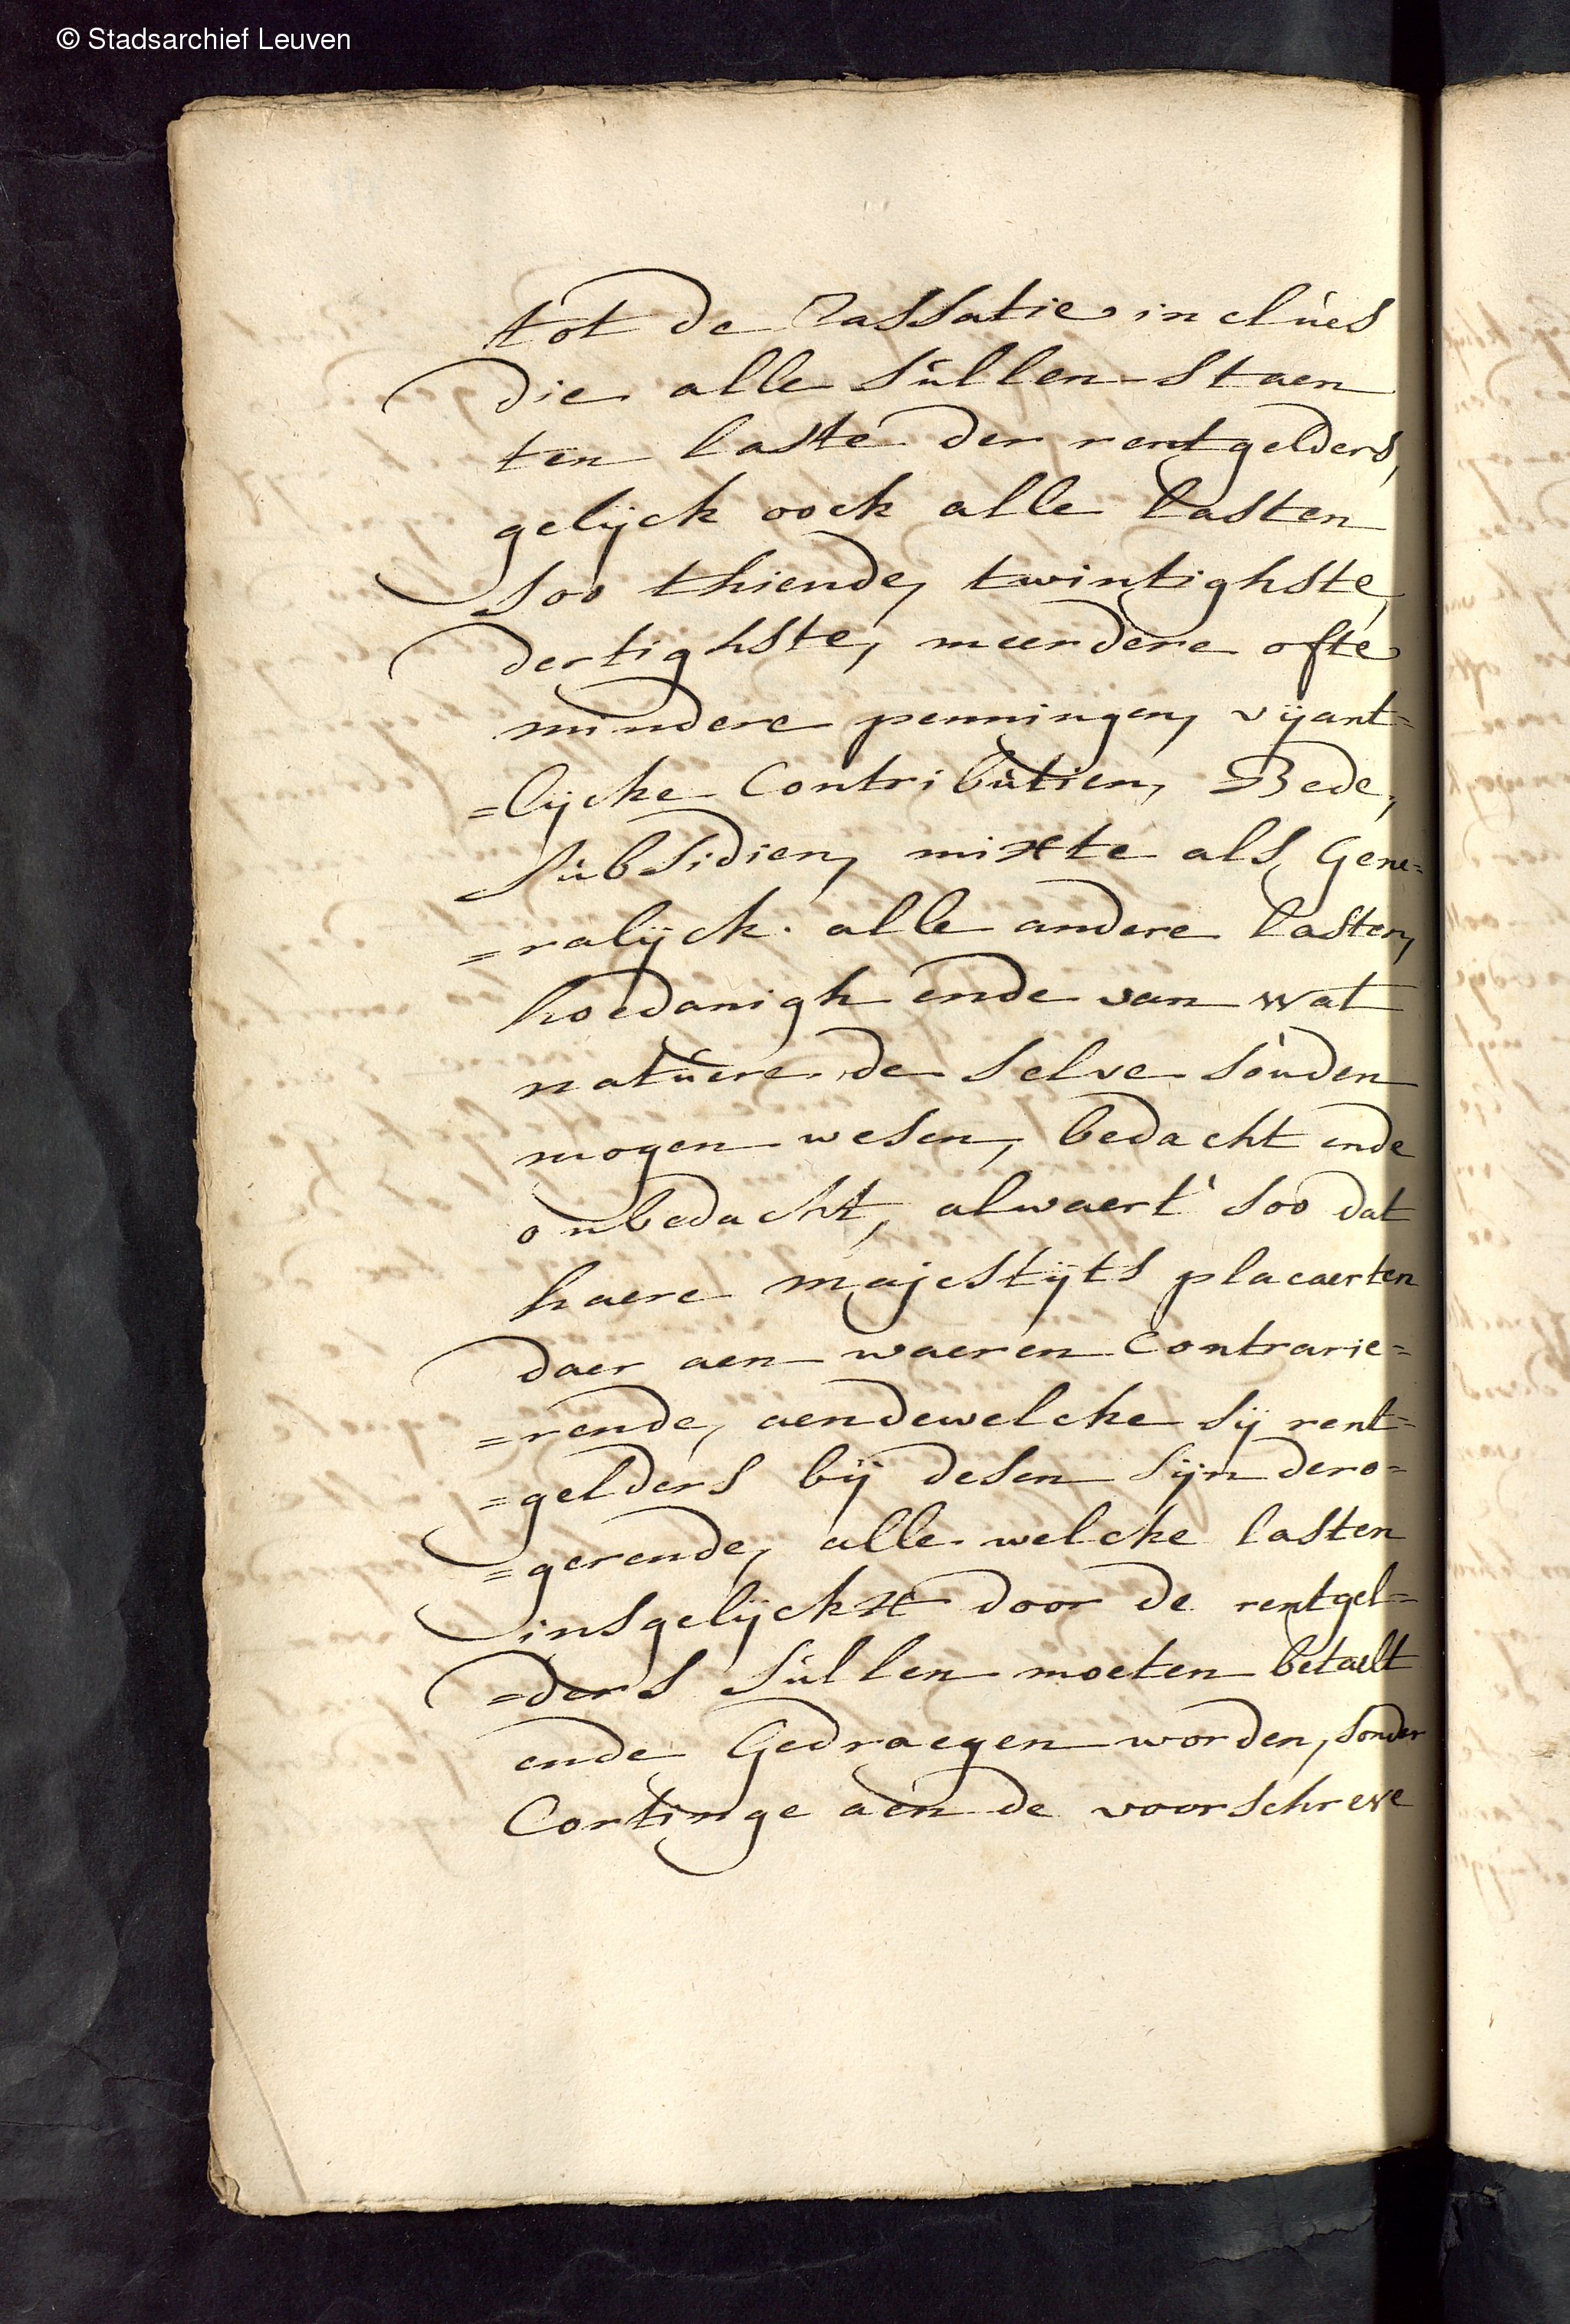 © Stadsarchief Leuven
tot de Cassatie inclues
die alle sullen staen
ten laste der rentgelders,
gelijck oock alle lasten
soo thiende, twintighste,
dertighste, meerdere ofte
mindere penningen, vijant=
=lijcke Contributien, Bede,
subsidien, mixte als Gene=
=ralijck alle andere lasten,
hoedanigh ende van wat
natuere de selve souden
mogen wesen, bedacht ende
onbedacht, alwaert soo dat
haere majestijts placaerten
daer aen waeren Contrarie=
=rende, aendewelcke sij rent=
=gelders bij desen sijn dero=
=gerende, alle welcke lasten
insgelijckx door de rentgel=
=ders sullen moeten betaelt
ende Gedraegen worden, sonder
Cortinge aen de voorschreve